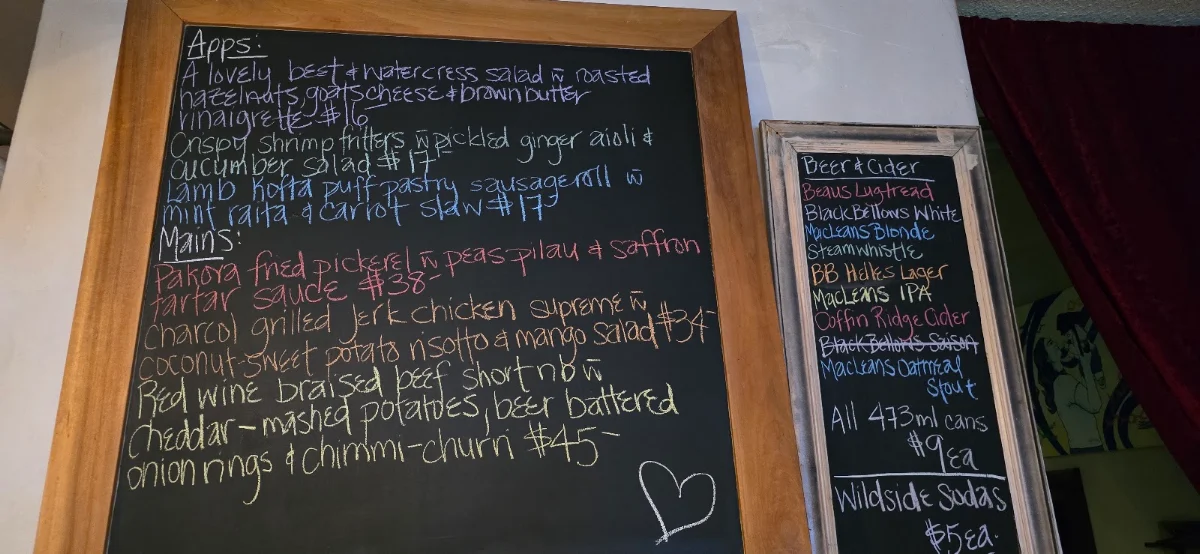 Apps:
A lovely beet & watercress salad w̄ roasted
hazelnuts, goats cheese & brown butter
vinaigrette $16
Crispy shrimp fritters w̄ pickled ginger aioli &
cucumber salad $17-
Lamb Kofta puff pastry sausage roll w̄
mint raita & carrot slaw $17-
Mains:
Pakora fried pickerel w̄ peas pilau & saffron
tartar sauce $38-
Charcol grilled Jerk chicken supreme w̄
coconut-sweet potato risotto & mango salad $34-
Red wine braised beef short rib w̄
cheddar-mashed potatoes, beer battered
onion rings & chimmi-churri $45-
Beer & Cider
Beaus Lugtread
Black Bellows White
MacLeans Blonde
Steamwhistle
BB Helles Lager
MacLeans IPA
Coffin Ridge Cider
Black Bellows Saison
MacLeans Oatmeal
Stout
All 473ml cans
$9ea
Wildside Sodas
$5ea.